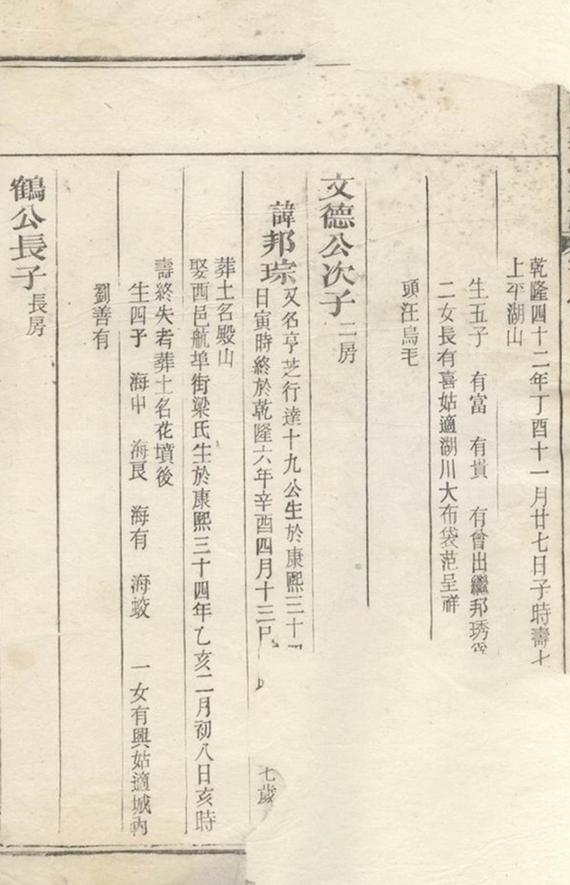 乾隆四十二年丁酉十一月廿七日子時壽七
上平湖山
生五子 有富 有貴 有會出繼邦琇爲
二女長有喜姑適湖川大布袋范呈祥
頭汪烏毛
文德公次子 二房
諱邦琮 又名亨芝行達十九公生於康熙三十
日寅時終於乾隆六年辛酉四月十三日
七歲
葬土名殿山
娶西邑航埠街梁氏生於康熙三十四年乙亥二月初八日亥時
壽終失考葬土名花墳後
生四子 海中 海艮 海有 海蛟 一女有興姑適城內
劉善有
鶴公長子 長房